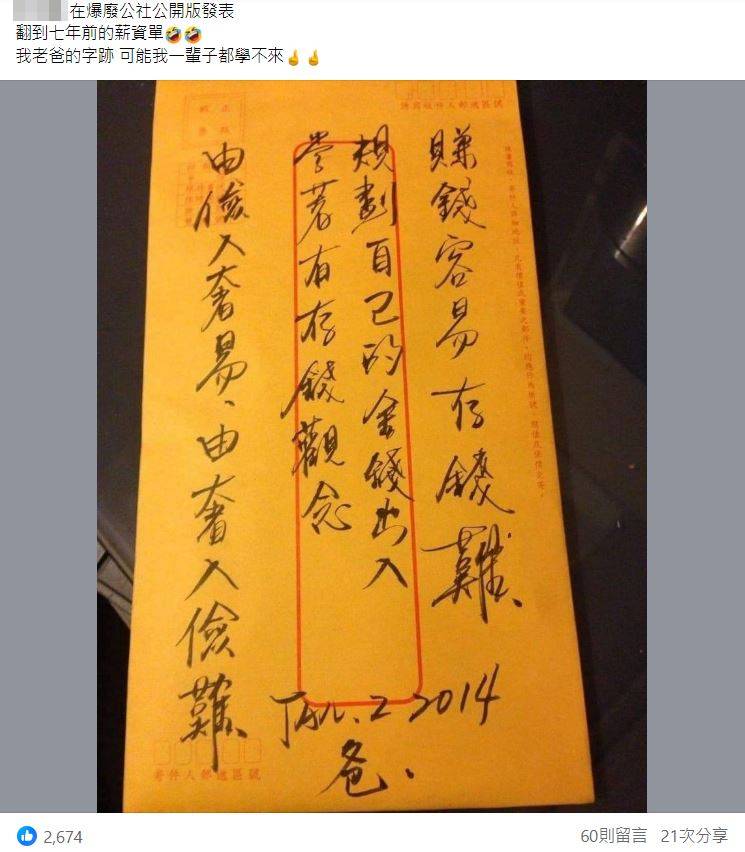 在爆廢公社公開版發表
翻到七年前的薪資單🤣🤣
我老爸的字跡 可能我一輩子都學不來🤞🤞
請寫收件人郵遞區號
賺錢容易存錢難、
規劃自己的金錢出入
嘗著有存錢觀念
由儉入奢易、由奢入儉難、
JAN. 2 2014
爸、
寄件人郵遞區號
2,674
60則留言 21次分享